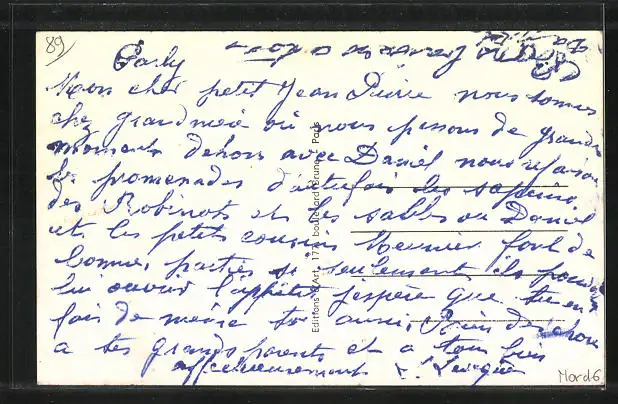 89
Parly
Mon cher petit Jean Pierre nous sommes
chez grand mère où nous passons de grands
moments dehors avec Daniel nous refaisons
les promenades d'autrefois les sapins,
des Robinots et les sables où Daniel
et les petits cousins Mercier font de
bonnes parties si seulement ils pouvaient
lui ouvrir l'appétit j'espère que tu en
fais de même toi aussi. Bien des choses
a tes grands parents et a tous bien
affectueusement
Editions d'Art, 17, boulevard Brune, Paris
Mord6